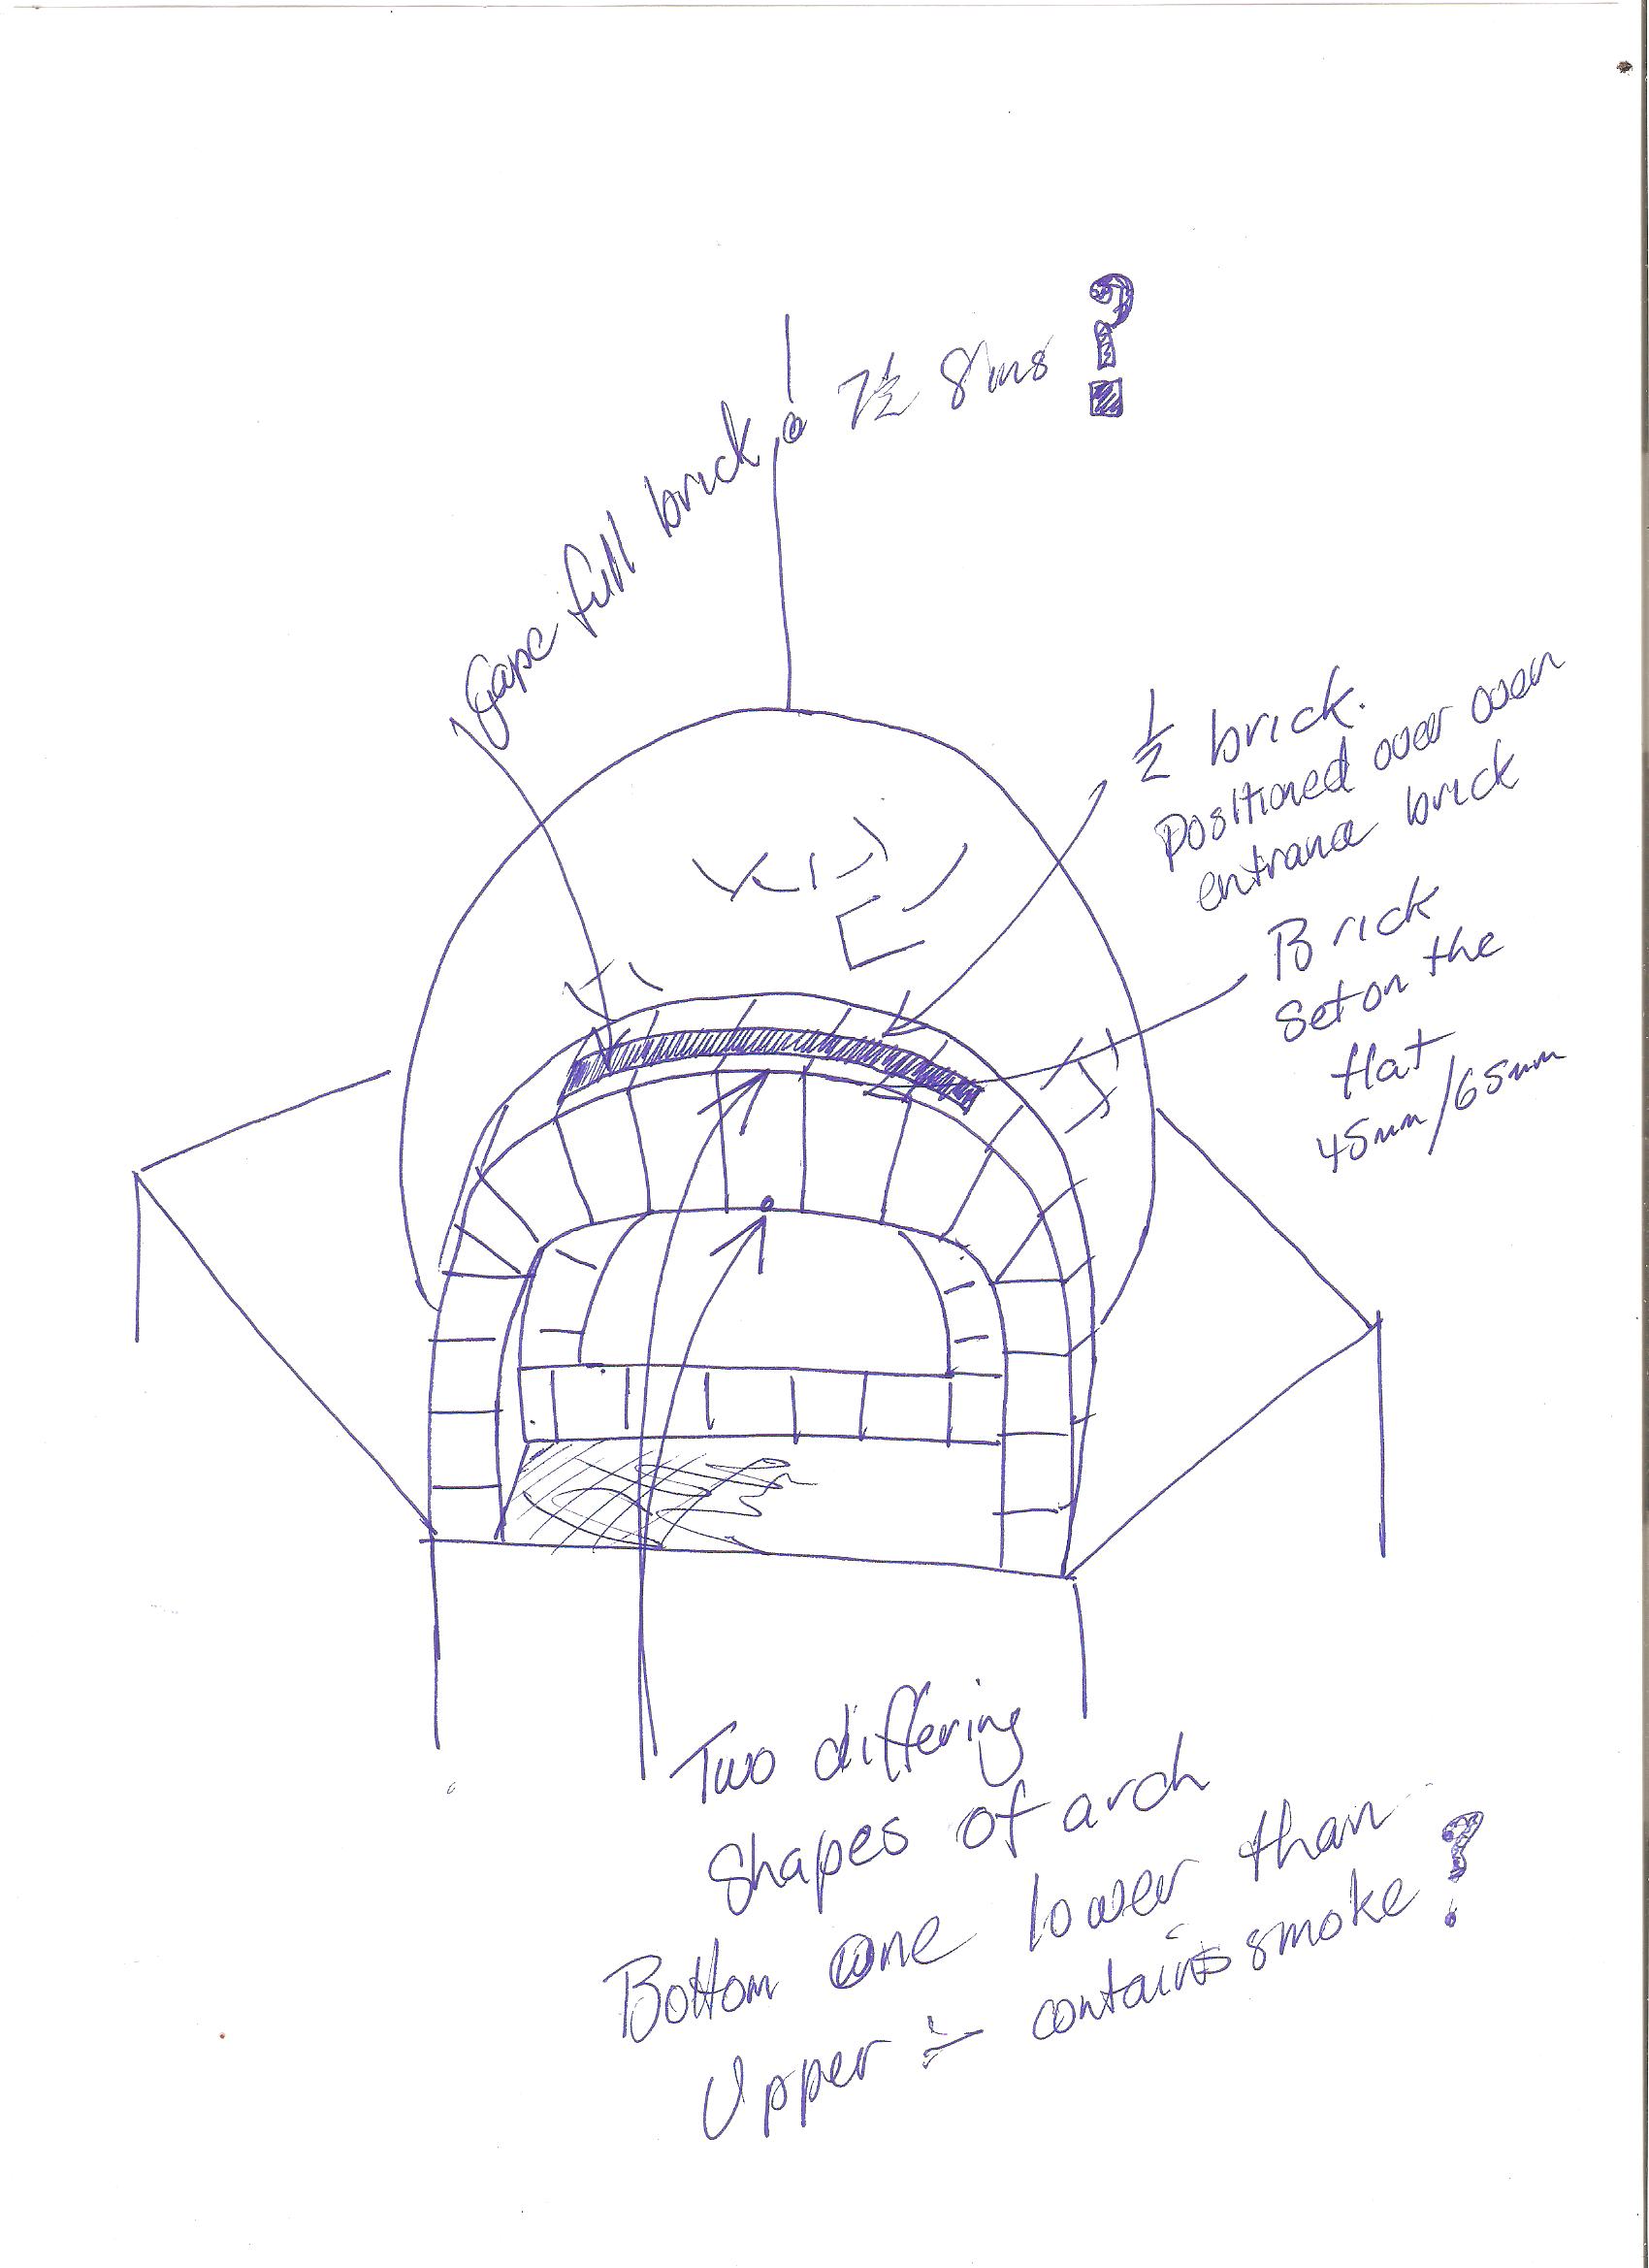 full brick @ 7½ 8ins ?
½ brick.
Positioned over oven
entrance brick
Brick
Set on the
flat
45mm/65mm
Two differing
Shapes of arch
Bottom one lower than
Upper ∴ contains smoke ?